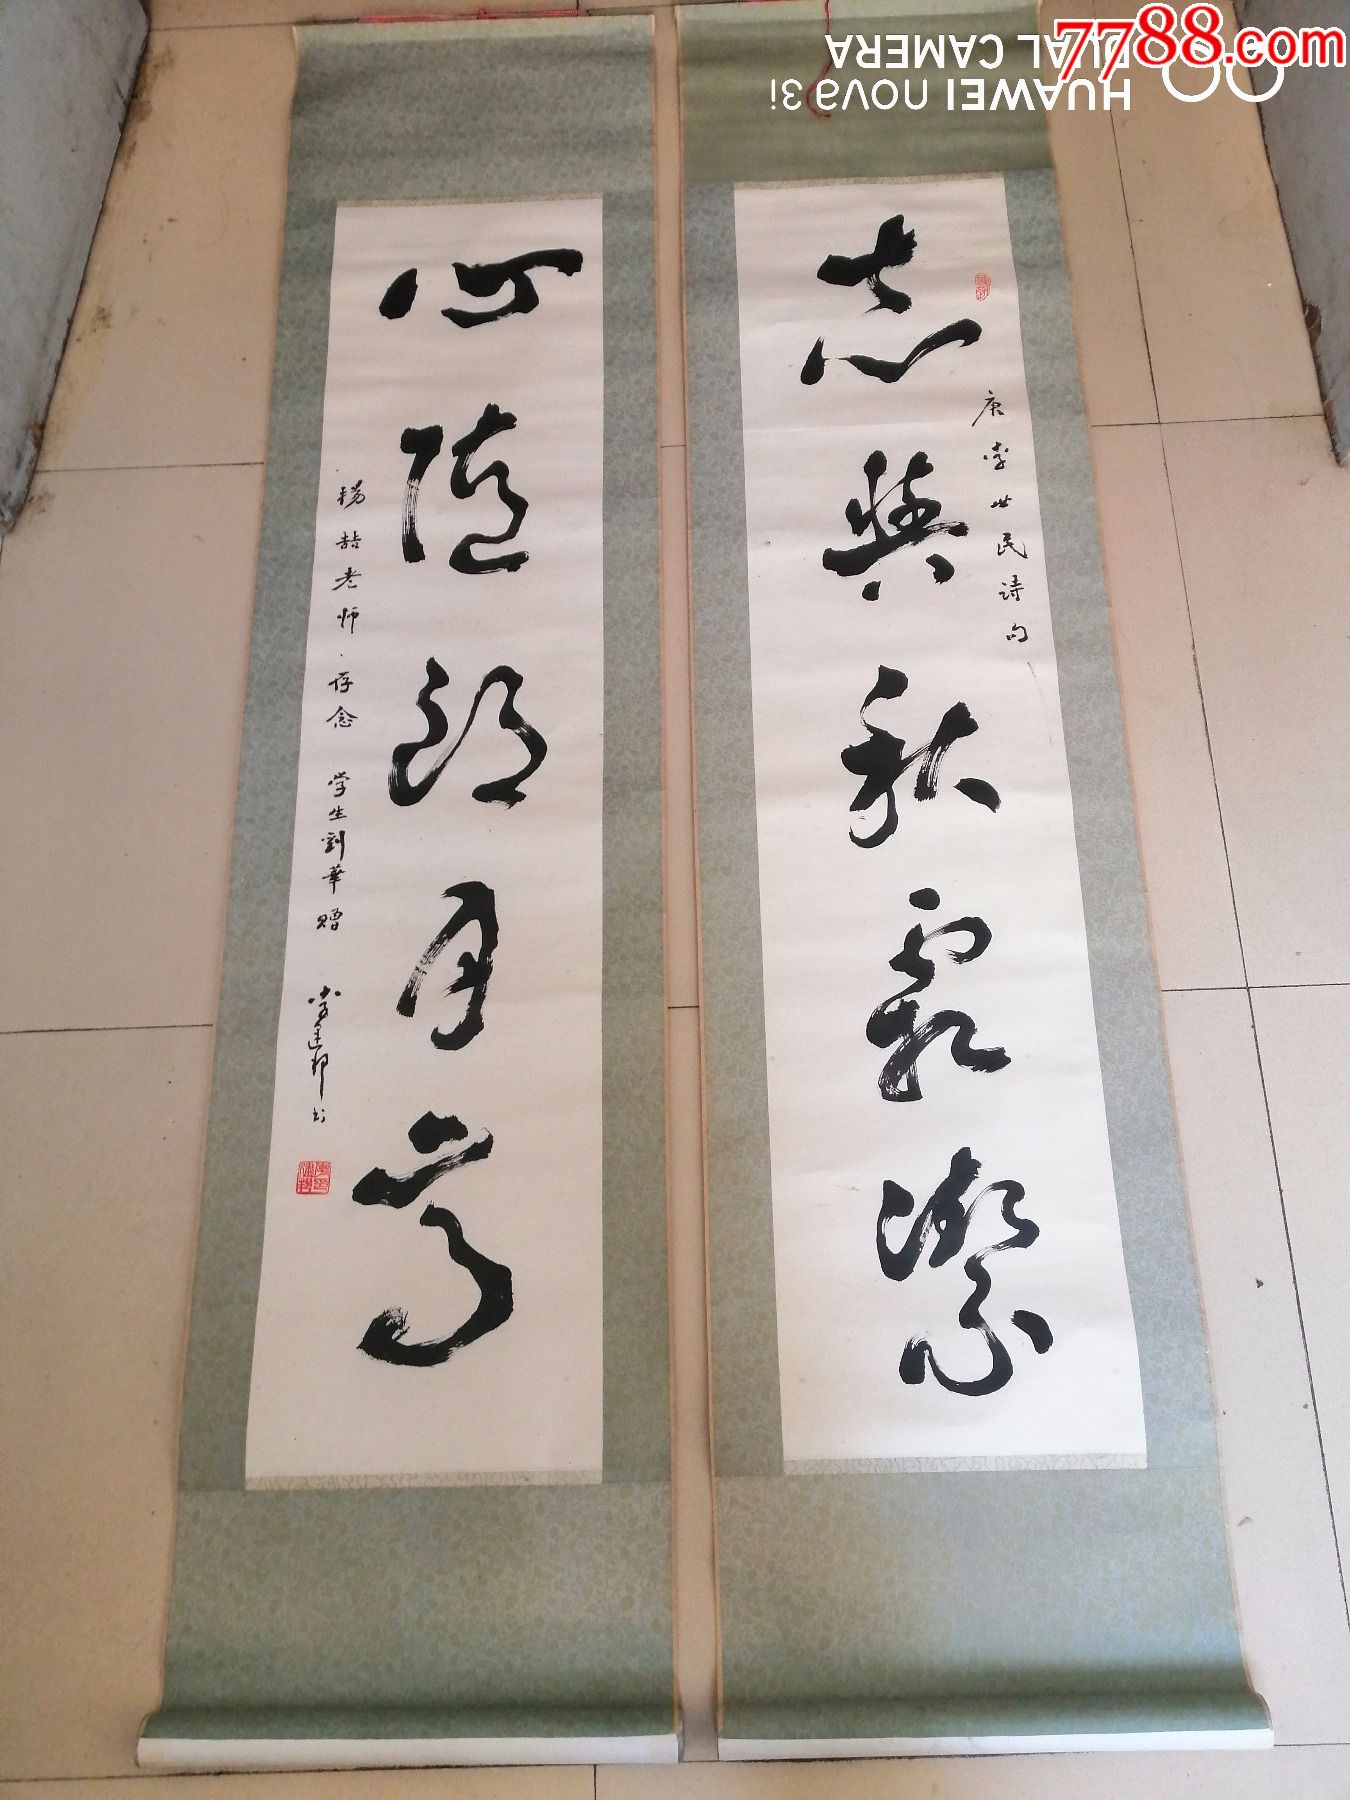 志與秋霜潔
唐李世民詩句
心随朗月高
楊喆老师存念 学生劉華贈
书
7788.com
HUAWEI nova 3i
DUAL CAMERA